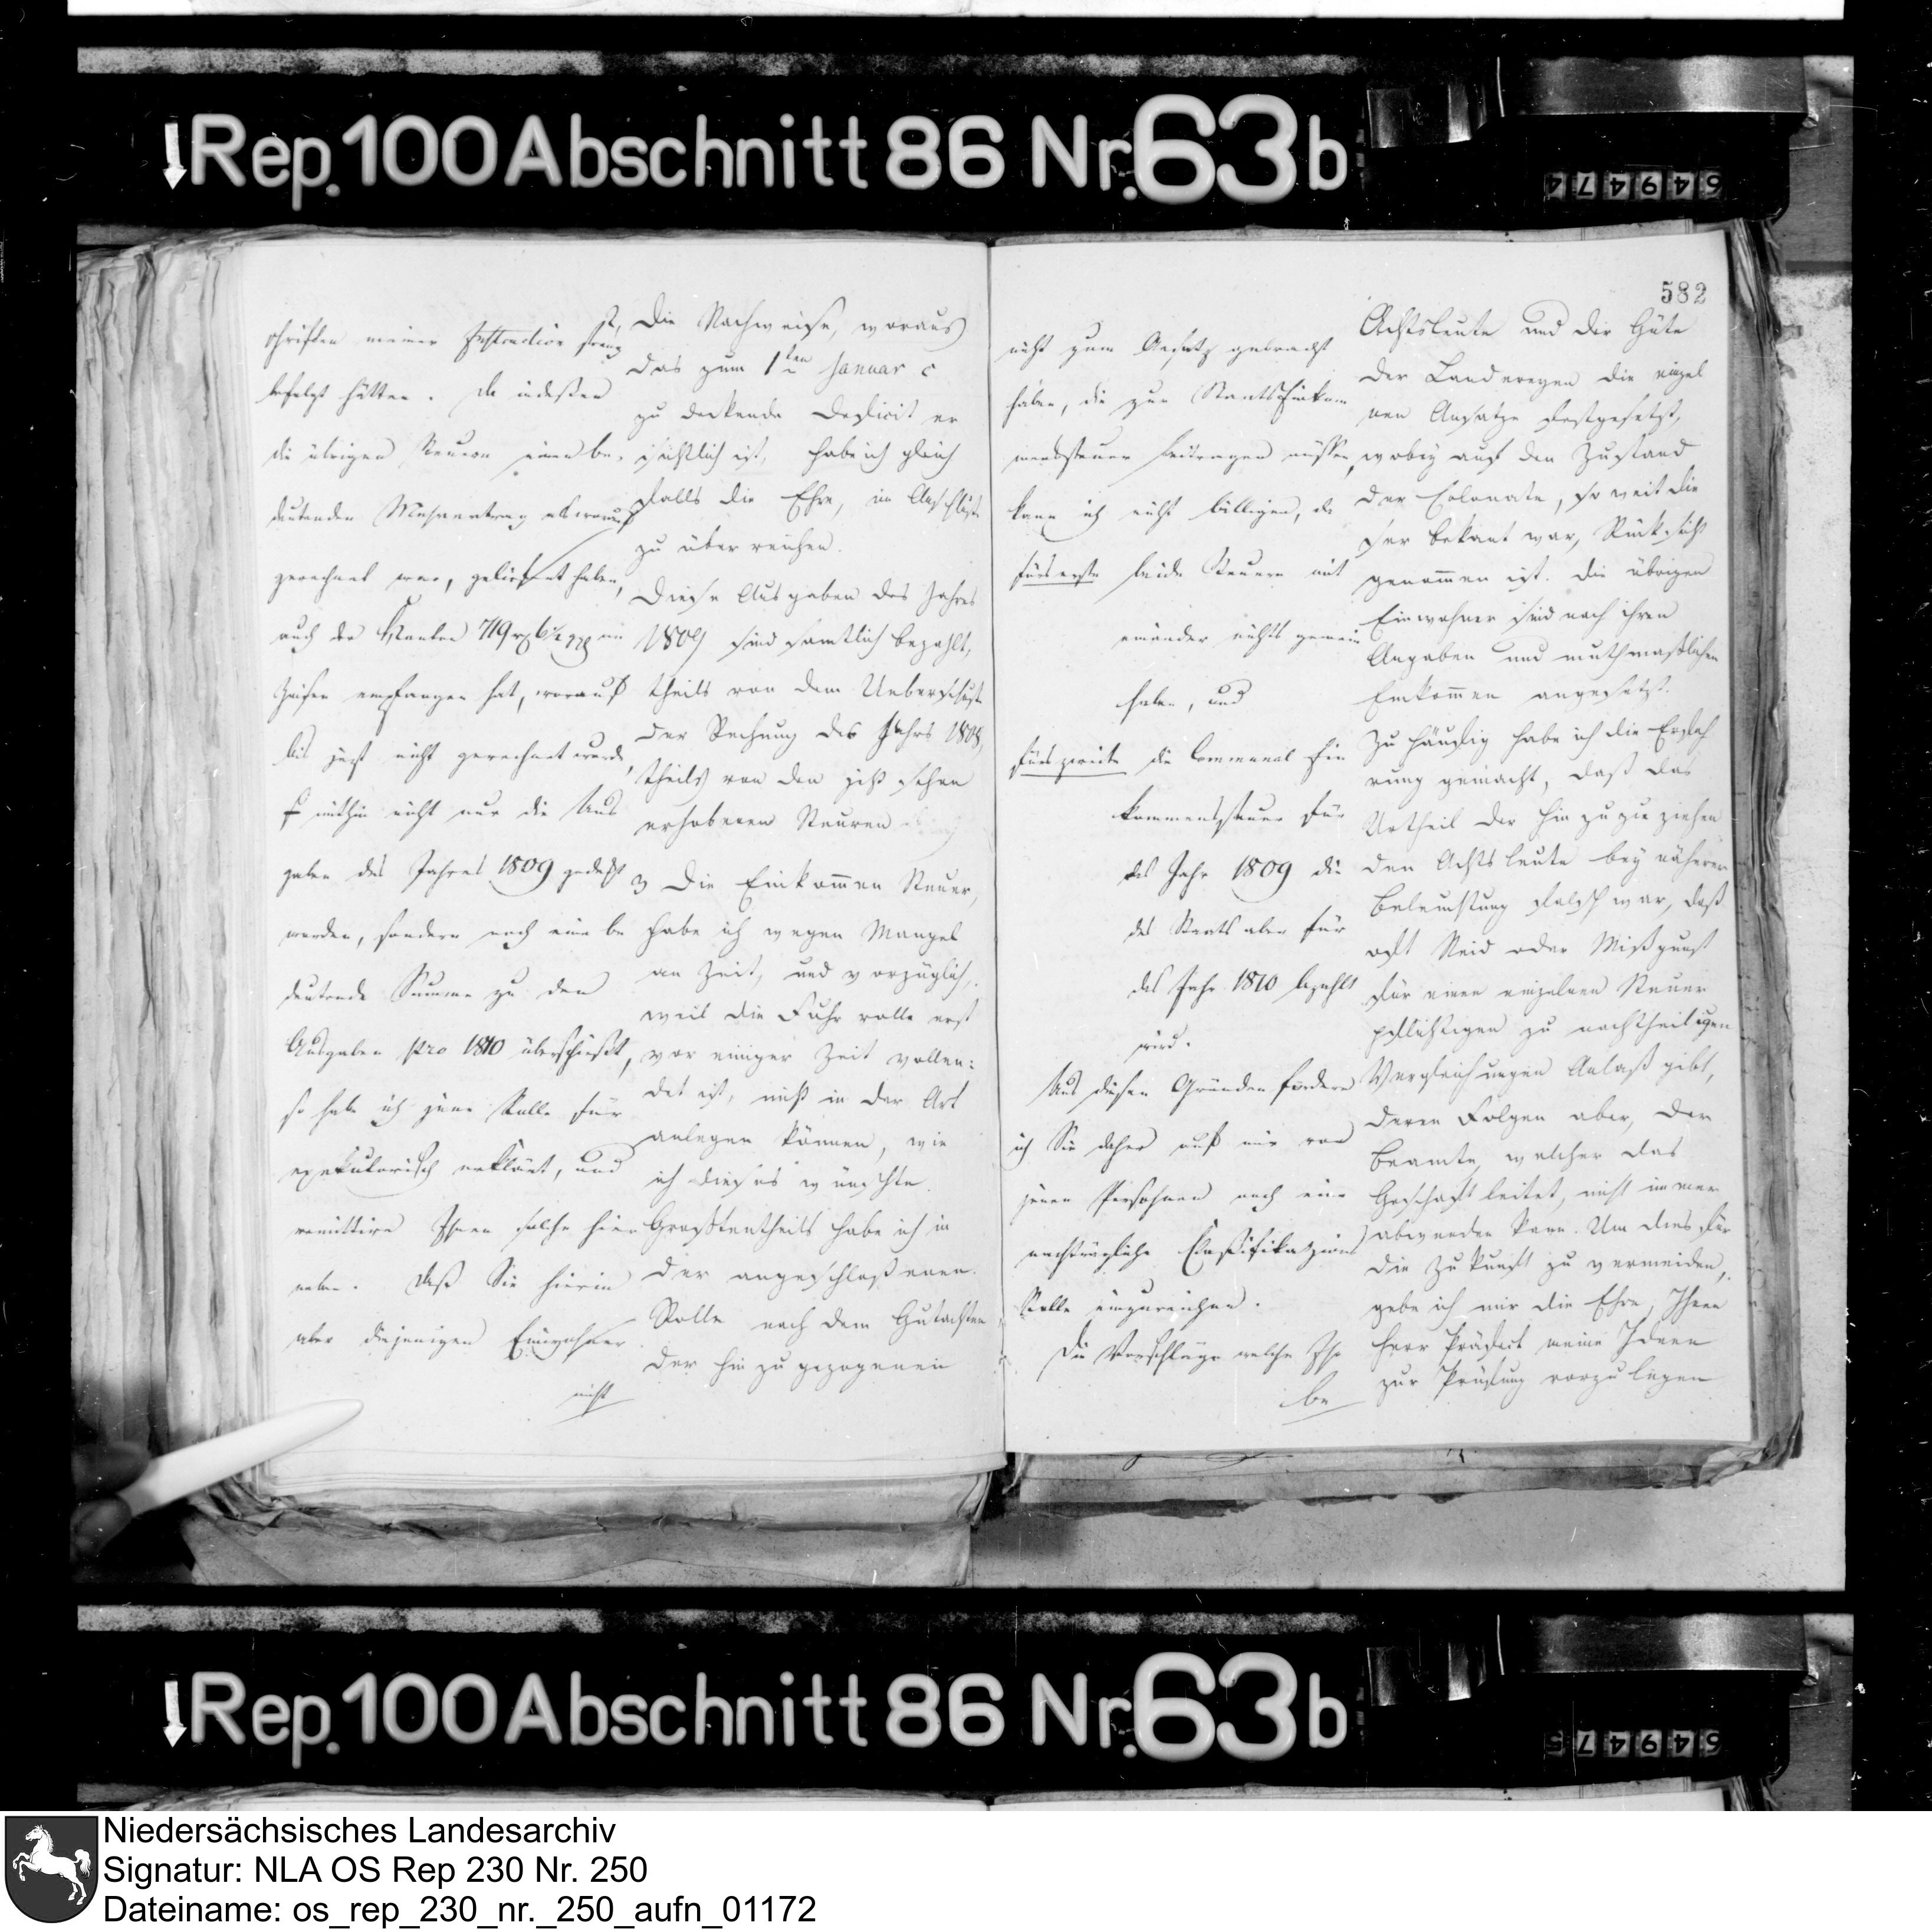 Rep. 100 Abschnitt 86 Nr. 63b
649474
schriften meiner Instruction streng
befolgt hätten. Da indeßen
die übrigen Steuern einen be-
deutenden Mehrertrag als worauf
gerechnet war, geliefert haben,
auch der Kanton 719 im
empfangen hat, worauf
bis jetzt nicht gerechnet wurde,
mithin nicht nur die Aus
gaben des Jahres 1809 gedeckt
werden, sondern noch eine be
deutende Summe zu den
Ausgaben pro 1810 überschießt,
so habe ich jene Rolle für
exekutorisch erklärt, und
remittire Ihnen solche hier
neben. Daß Sie hierin
aber diejenigen Einwohner
nicht
Die Nachweise, woraus
das zum 1ten Januar c
zu deckende Deficit er
sichtlich ist, habe ich gleich
falls die Ehre, im Anschluße
zu überreichen.
Diese Ausgaben des Jahres
1809 sind sämtlich bezahlt,
theils von dem Ueberschuße
der Rechnung des Jahrs 1808,
theils von den jezt schon
erhobenen Steuren
3 Die Einkommen Steuer,
habe ich wegen Mangel
an Zeit, und vorzüglich,
weil die Fuhr rolle erst
vor einiger Zeit vollen:
det ist, nicht in der Art
anlegen können, wie
ich dieses wünschte.
Großtentheils habe ich in
der angeschloßenen
Rolle nach dem Gutachten
der hin zu gezogenen
582
nicht zum Ansatz gebracht
haben, die zur Staats Einkom
mensteuer beitragen müssen,
kann ich nicht billigen, da
fürs erste beide Steuern mit
einander nichts gemein
haben, und
fürs zweite die Communal Ein
kommensteuer für
das Jahr 1809 die
des Staats aber für
das Jahr 1810 bezahlt
wird.
Aus diesen Gründen fordere
ich Sie daher auf mir von
jenen Persohnen noch eine
nachträgliche Classifikazions
Rolle einzureichen.
Die Vorschläge welche Ihr
be
Achtsleute und der Güte
der Landereyen die einzel
nen Ansatze festgesetzt,
wobey auf den Zustand
der Colonate, so weit die
ser bekant war, Rücksicht
genommen ist. Die übrigen
Einwohner sind nach ihren
Angaben und muthmaßlichen
Einkommen angesetzt.
Zu häufig habe ich die Erfah
rung gemacht, daß das
Urtheil der hin zu zu ziehen
den Achtsleute bey näherer
Beleuchtung falsch war, daß
oft Neid oder Mißgunst
für einen einzelnen Steuer
pflichtigen zu nachtheiligen
Vergleichungen Anlaß gibt,
deren Folgen aber, der
Beamte, welcher das
Geschäft leitet, nicht immer
abwenden kann. Um dies für
die Zukunft zu vermeiden,
gebe ich mir die Ehre, Ihnen
Herr Präfect meine Ideen
zur Prüfung vorzulegen
Rep. 100 Abschnitt 86 Nr. 63b
649475
Niedersächsisches Landesarchiv
Signatur: NLA OS Rep 230 Nr. 250
Dateiname: os_rep_230_nr._250_aufn_01172